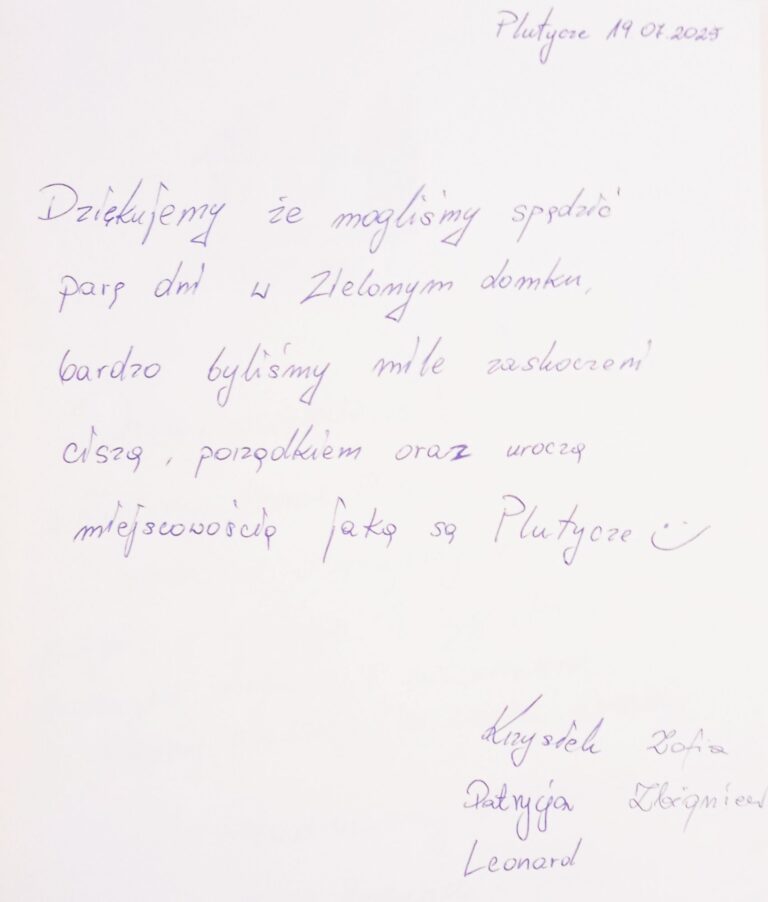 Plutycze 19.07.2025
Dziękujemy że mogliśmy spędzić
parę dni w Zielonym domku,
bardzo byliśmy mile zaskoczeni
ciszą, porządkiem oraz uroczą
miejscowością jaką są Plutycze
Krzysiek Zofia
Patrycja Zbigniew
Leonard